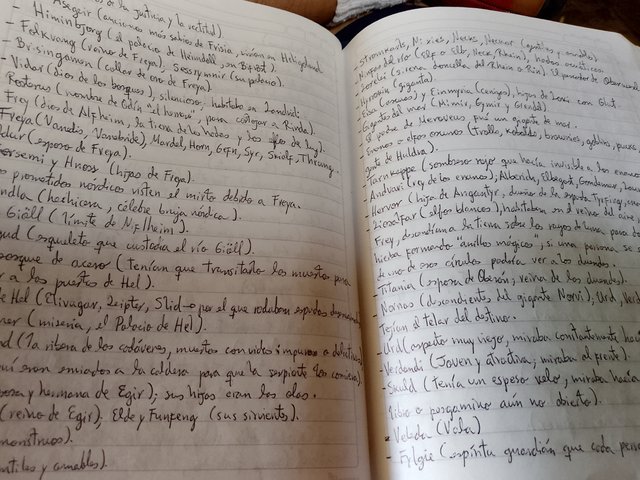 de la justicia y la verdad).
- Asegir (ancianos más sabios de Frisia, vivían en Heligoland.
- Himinbjorg (el palacio de Heimdall, en Bifröst).
- Folkvang (reino de Freya), Sessrymnir (su palacio).
- Brisingamen (collar de oro de Freya).
- Vidar (dios de los bosques), silencioso, habitaba en Landvidi.
Rosterus (nombre de Odín "el humano", para cortejar a Rinda).
Frey (dios de Alfheim, la tierra de las hadas y los elfos de luz).
Freya (Vanadis, Vanabride), Mardel, Horn, Gefn, Syr, Skialf, Thrung.
(esposo de Freya).
Gersemi y Hnoss (hijas de Freya).
prometidos nórdicos visten el mirto debido a Freya.
(hechicera, célebre bruja nórdica).
Giöll (límite de Niflheim).
(esqueleto que custodia el río Giöll).
bosque de acero (tenían que transitarlo los muertos para
a las puertas de Hel).
de Hel (Elivagar, Leipter, Slid → por el que rodaban espadas
(miseria, el Palacio de Hel).
(la ribera de los cadáveres, muertos con vidas impuras o delictivas
eran enviados a la caldera para que la serpiente los comiera).
y hermana de Egir); sus hijas eran las olas.
(reino de Egir), Elde y Funfeng (sus sirvientes).
monstruos).
y amables).
- Stromkarls, Nixies, Necks, Neckar (gentiles y amables).
- Ninfas del río (Elfe o Elb, Neck, Rhein), hadas acuáticas.
- Lorelei (sirena doncella del Rhein o Rin). El ganador de Oberwesel
- Hyrrokin (giganta).
- Eisa (ascuas) y Einmyria (cenizas), hijas de Loki con Glut.
- Gigantes del mar (Mimir, Gymir y Grendel).
- El padre de Meroveus fué un gigante de mar.
- Enanos o elfos oscuros (Trolls, kobolds, brownies, goblins, pucks,
gente de Huldra).
- Tarnkappe (sombrero rojo que hacía invisible a los enanos
- Andvari (rey de los enanos), Alberich, Elbegast, Gondemar, Laurin
- Hervor (hija de Angantyr, dueña de la espada Tyrfing,
- Liosalfar (elfos blancos), habitaban en el reino del aire
Frey, descendían a la tierra sobre los rayos de luna, para
hierba formando "anillos mágicos"; si una persona se
de uno de esos círculos podría ver a los duendes.
- Titania (esposa de Oberón, reina de los duendes).
- Nornas (descendientes del gigante Norvi), Urd, Verdandi
Tejían el telar del destino.
- Urd (aspecto muy viejo, miraba constantemente hacia
- Verdandi (Joven y atractiva; miraba al frente).
- Skuld (Tenía un espeso velo, miraba hacia
libro o pergamino aún no abierto).
- Veleda (Vala)
- Fylgie (espíritu guardián que cada persona